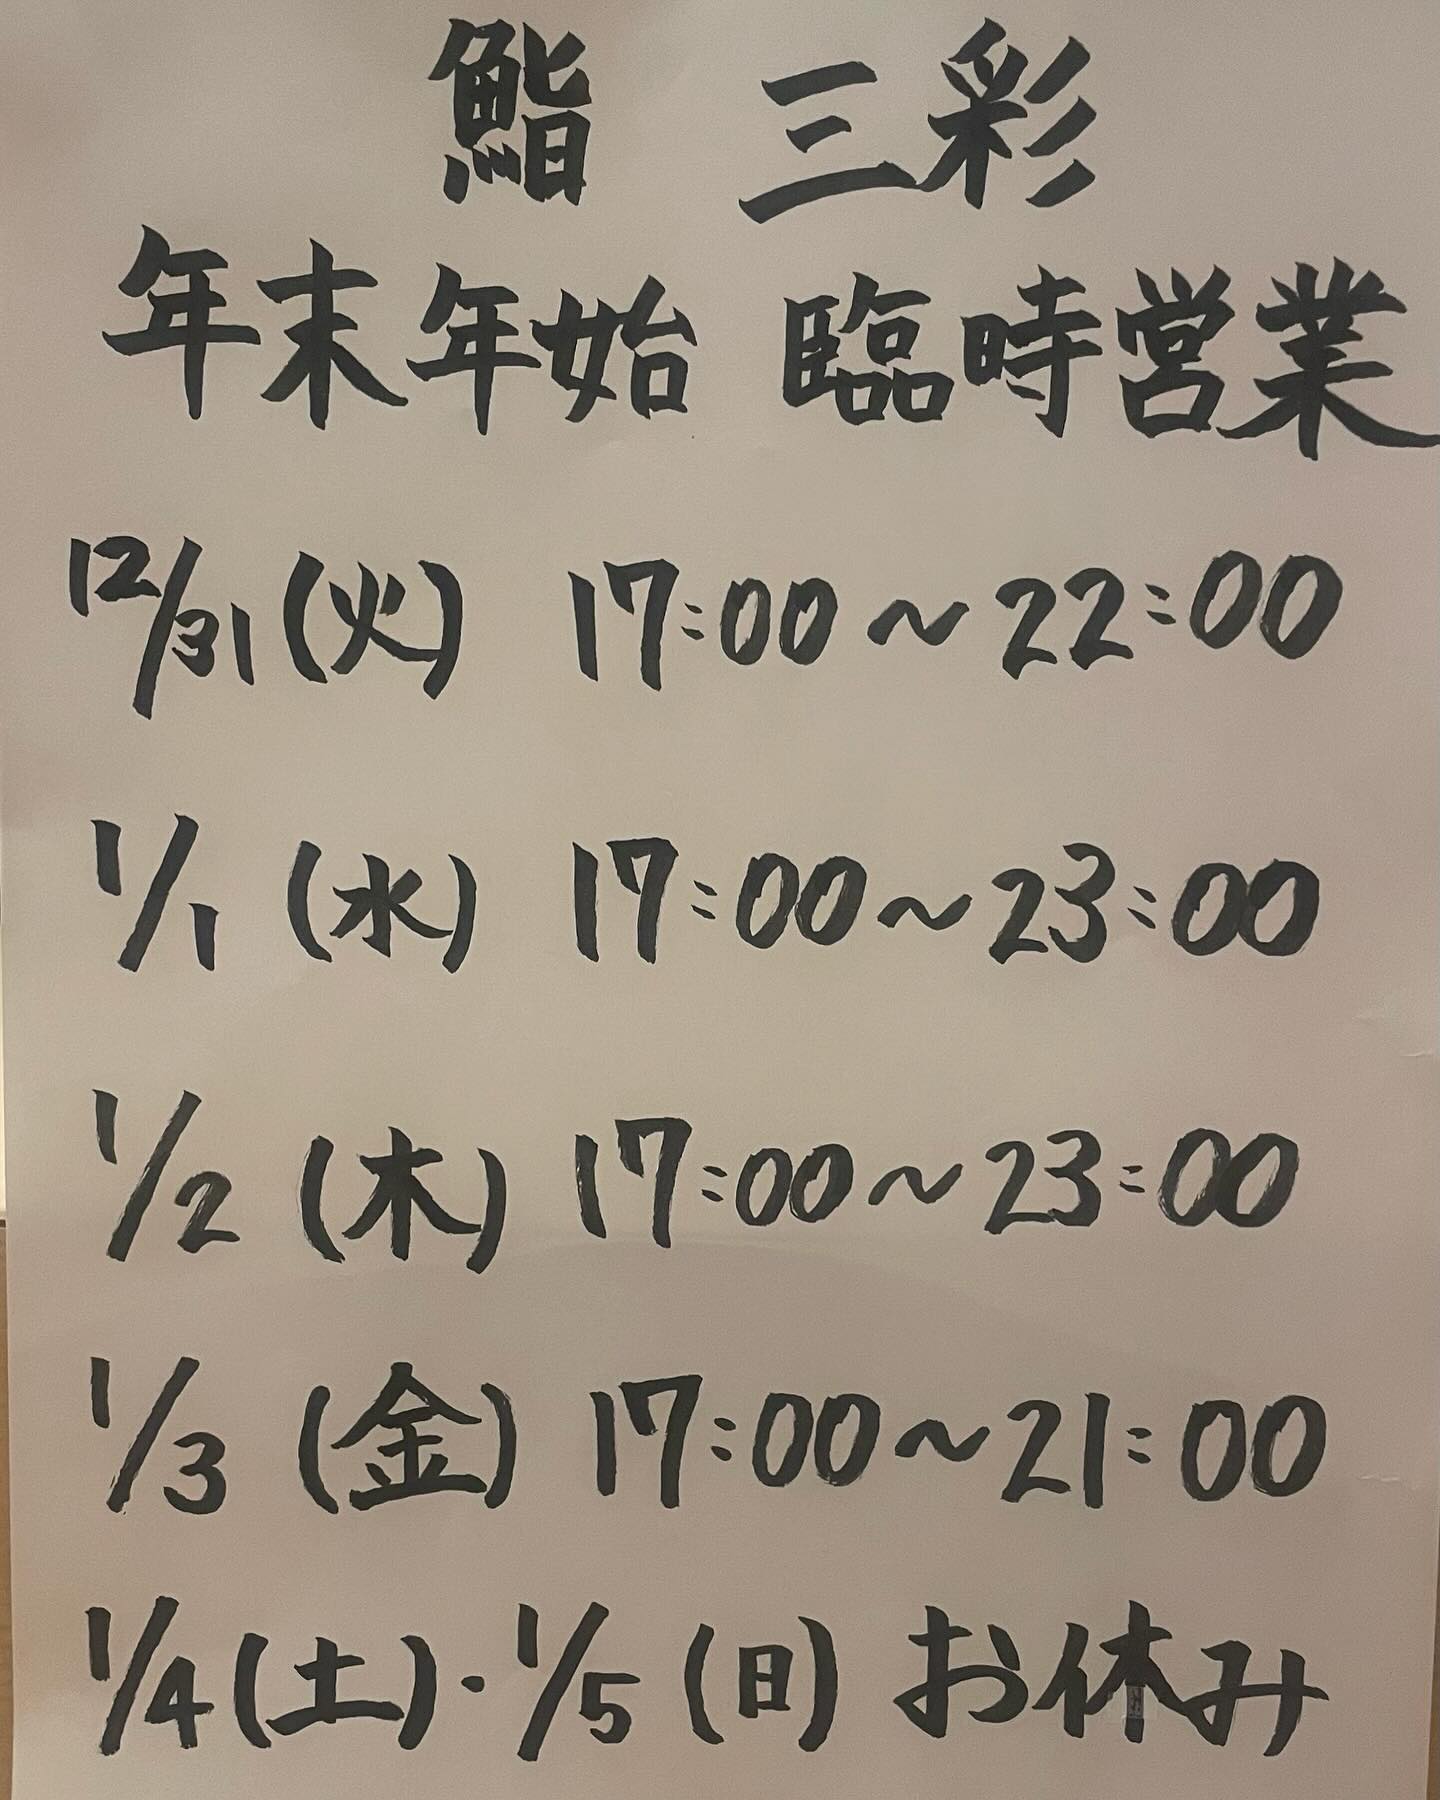 鮨 三彩
年末年始 臨時営業
12/31(火) 17:00～22:00
1/1(水) 17:00～23:00
1/2(木) 17:00～23:00
1/3(金) 17:00～21:00
1/4(土)・1/5(日) お休み